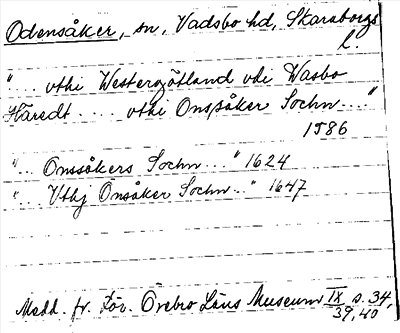 Odensåker, sn, Vadsbo hd, Skaraborgs
l.
"... uthi Westergötland vdi Wasbo
Häredt .... vthi Onsåker Sochn ...."
1586
"... Onssåkers Sochn ..." 1624
"... Vthj Onsåker Sochn ..." 1647
Medd. fr. För. Örebro Läns Museum IX s. 34,
39, 40